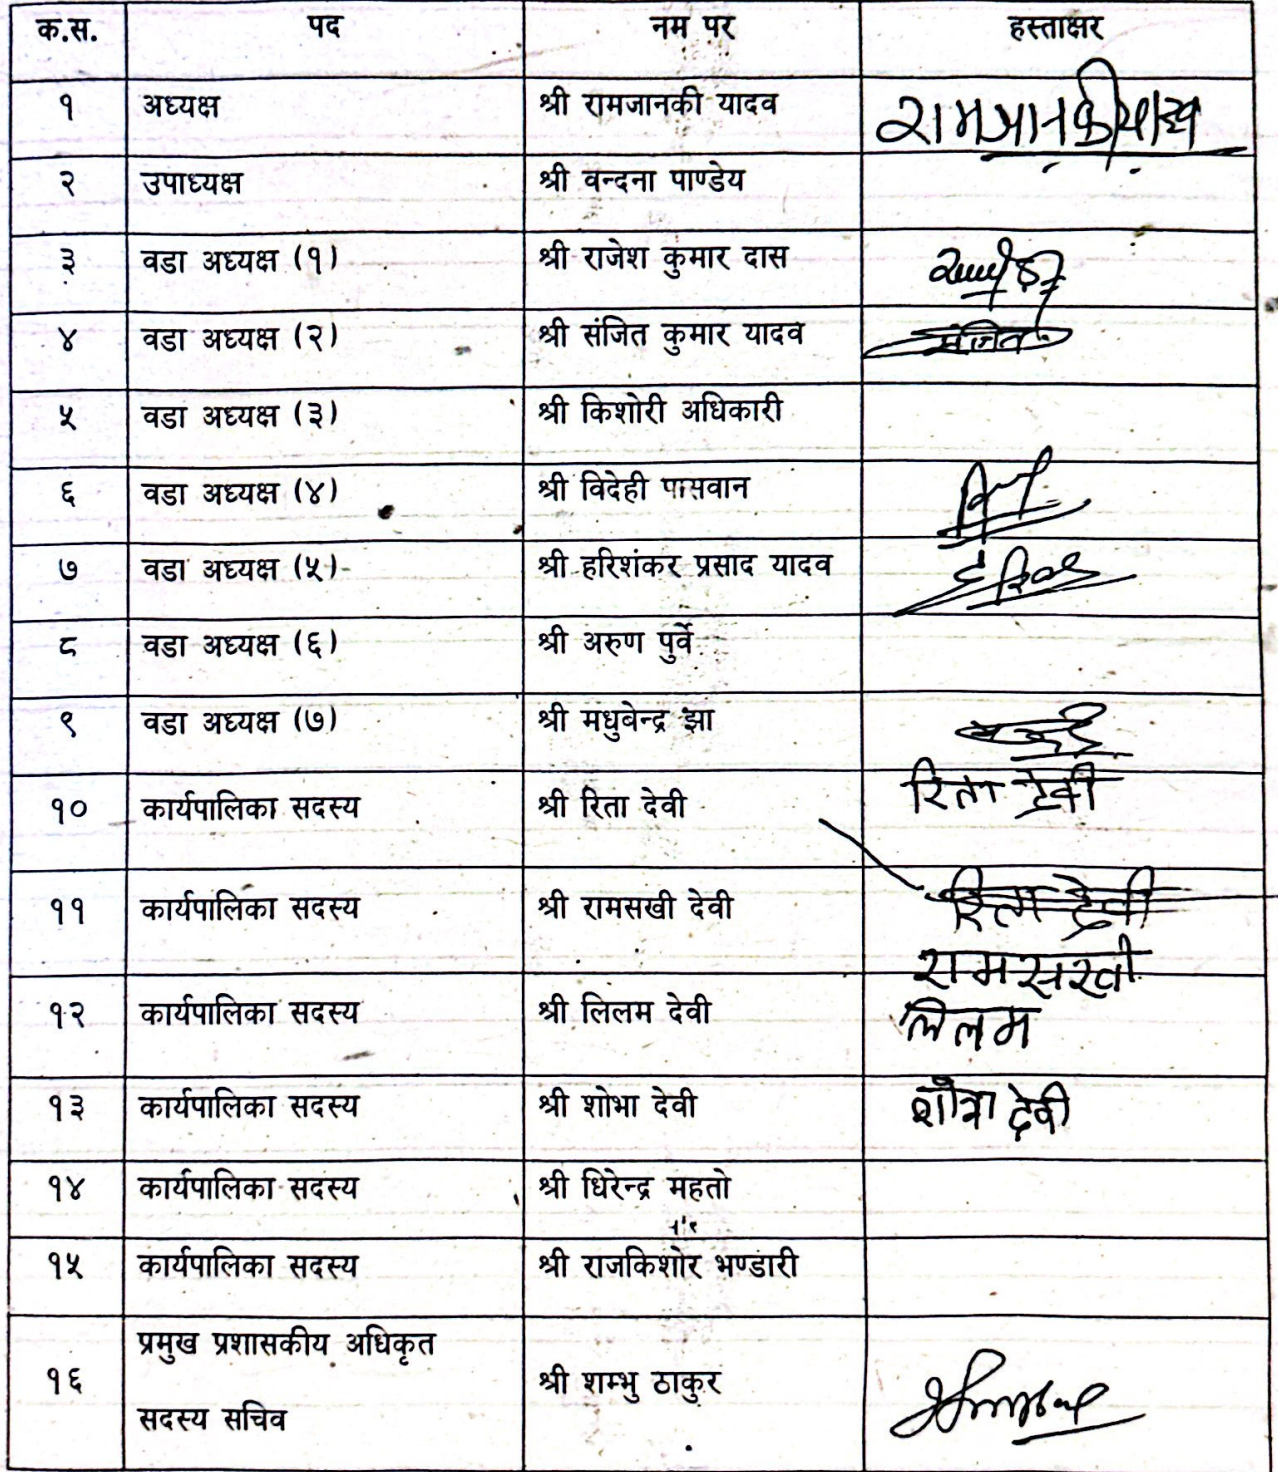 क.स. पद नम पर हस्ताक्षर
१ अध्यक्ष श्री रामजानकी यादव रामजानकी यादव
२ उपाध्यक्ष श्री वन्दना पाण्डेय
३ वडा अध्यक्ष (१) श्री राजेश कुमार दास
४ वडा अध्यक्ष (२) श्री संजित कुमार यादव संजित
५ वडा अध्यक्ष (३) श्री किशोरी अधिकारी
६ वडा अध्यक्ष (४) श्री विदेही पासवान
७ वडा अध्यक्ष (५) श्री हरिशंकर प्रसाद यादव
८ वडा अध्यक्ष (६) श्री अरुण पुर्वे
९ वडा अध्यक्ष (७) श्री मधुबेन्द्र झा
१० कार्यपालिका सदस्य श्री रिता देवी रिता देवी
११ कार्यपालिका सदस्य श्री रामसखी देवी रिता देवी
रामसखी
१२ कार्यपालिका सदस्य श्री लिलम देवी लिलम
१३ कार्यपालिका सदस्य श्री शोभा देवी शोभा देवी
१४ कार्यपालिका सदस्य श्री धिरेन्द्र महतो
१५ कार्यपालिका सदस्य श्री राजकिशोर भण्डारी
प्रमुख प्रशासकीय अधिकृत
१६ श्री शम्भु ठाकुर
सदस्य सचिव